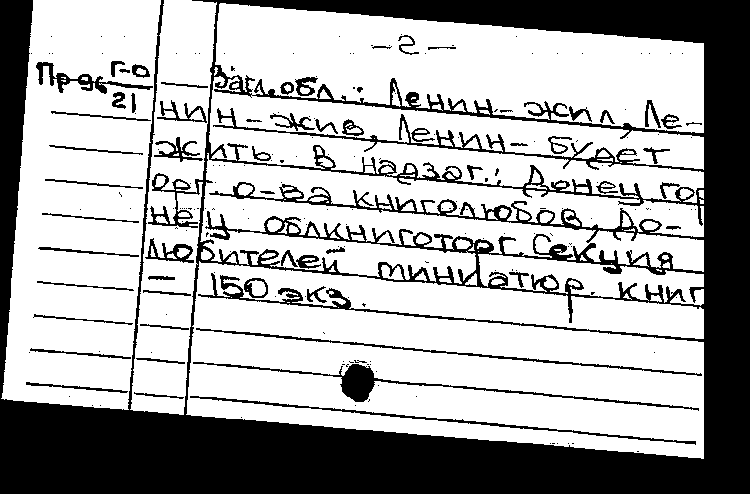 – 2 –
Пр 96 Г-0/21
Загл.обл.: Ленин – жил, Ле-
нин – жив, Ленин – будет
жить. В надзаг.: Донец гор
орг. о-ва книголюбов, До-
нец облкниготорг. Секция
любителей миниатюр. книг
– 150 экз.